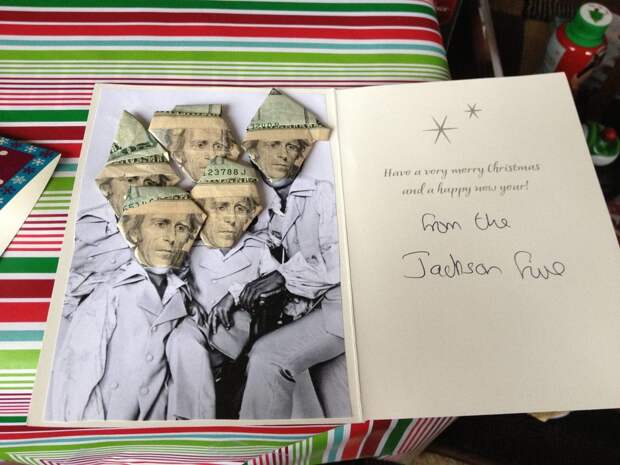 23788 J
Have a very merry Christmas
and a happy new year!
from the
Jackson Five